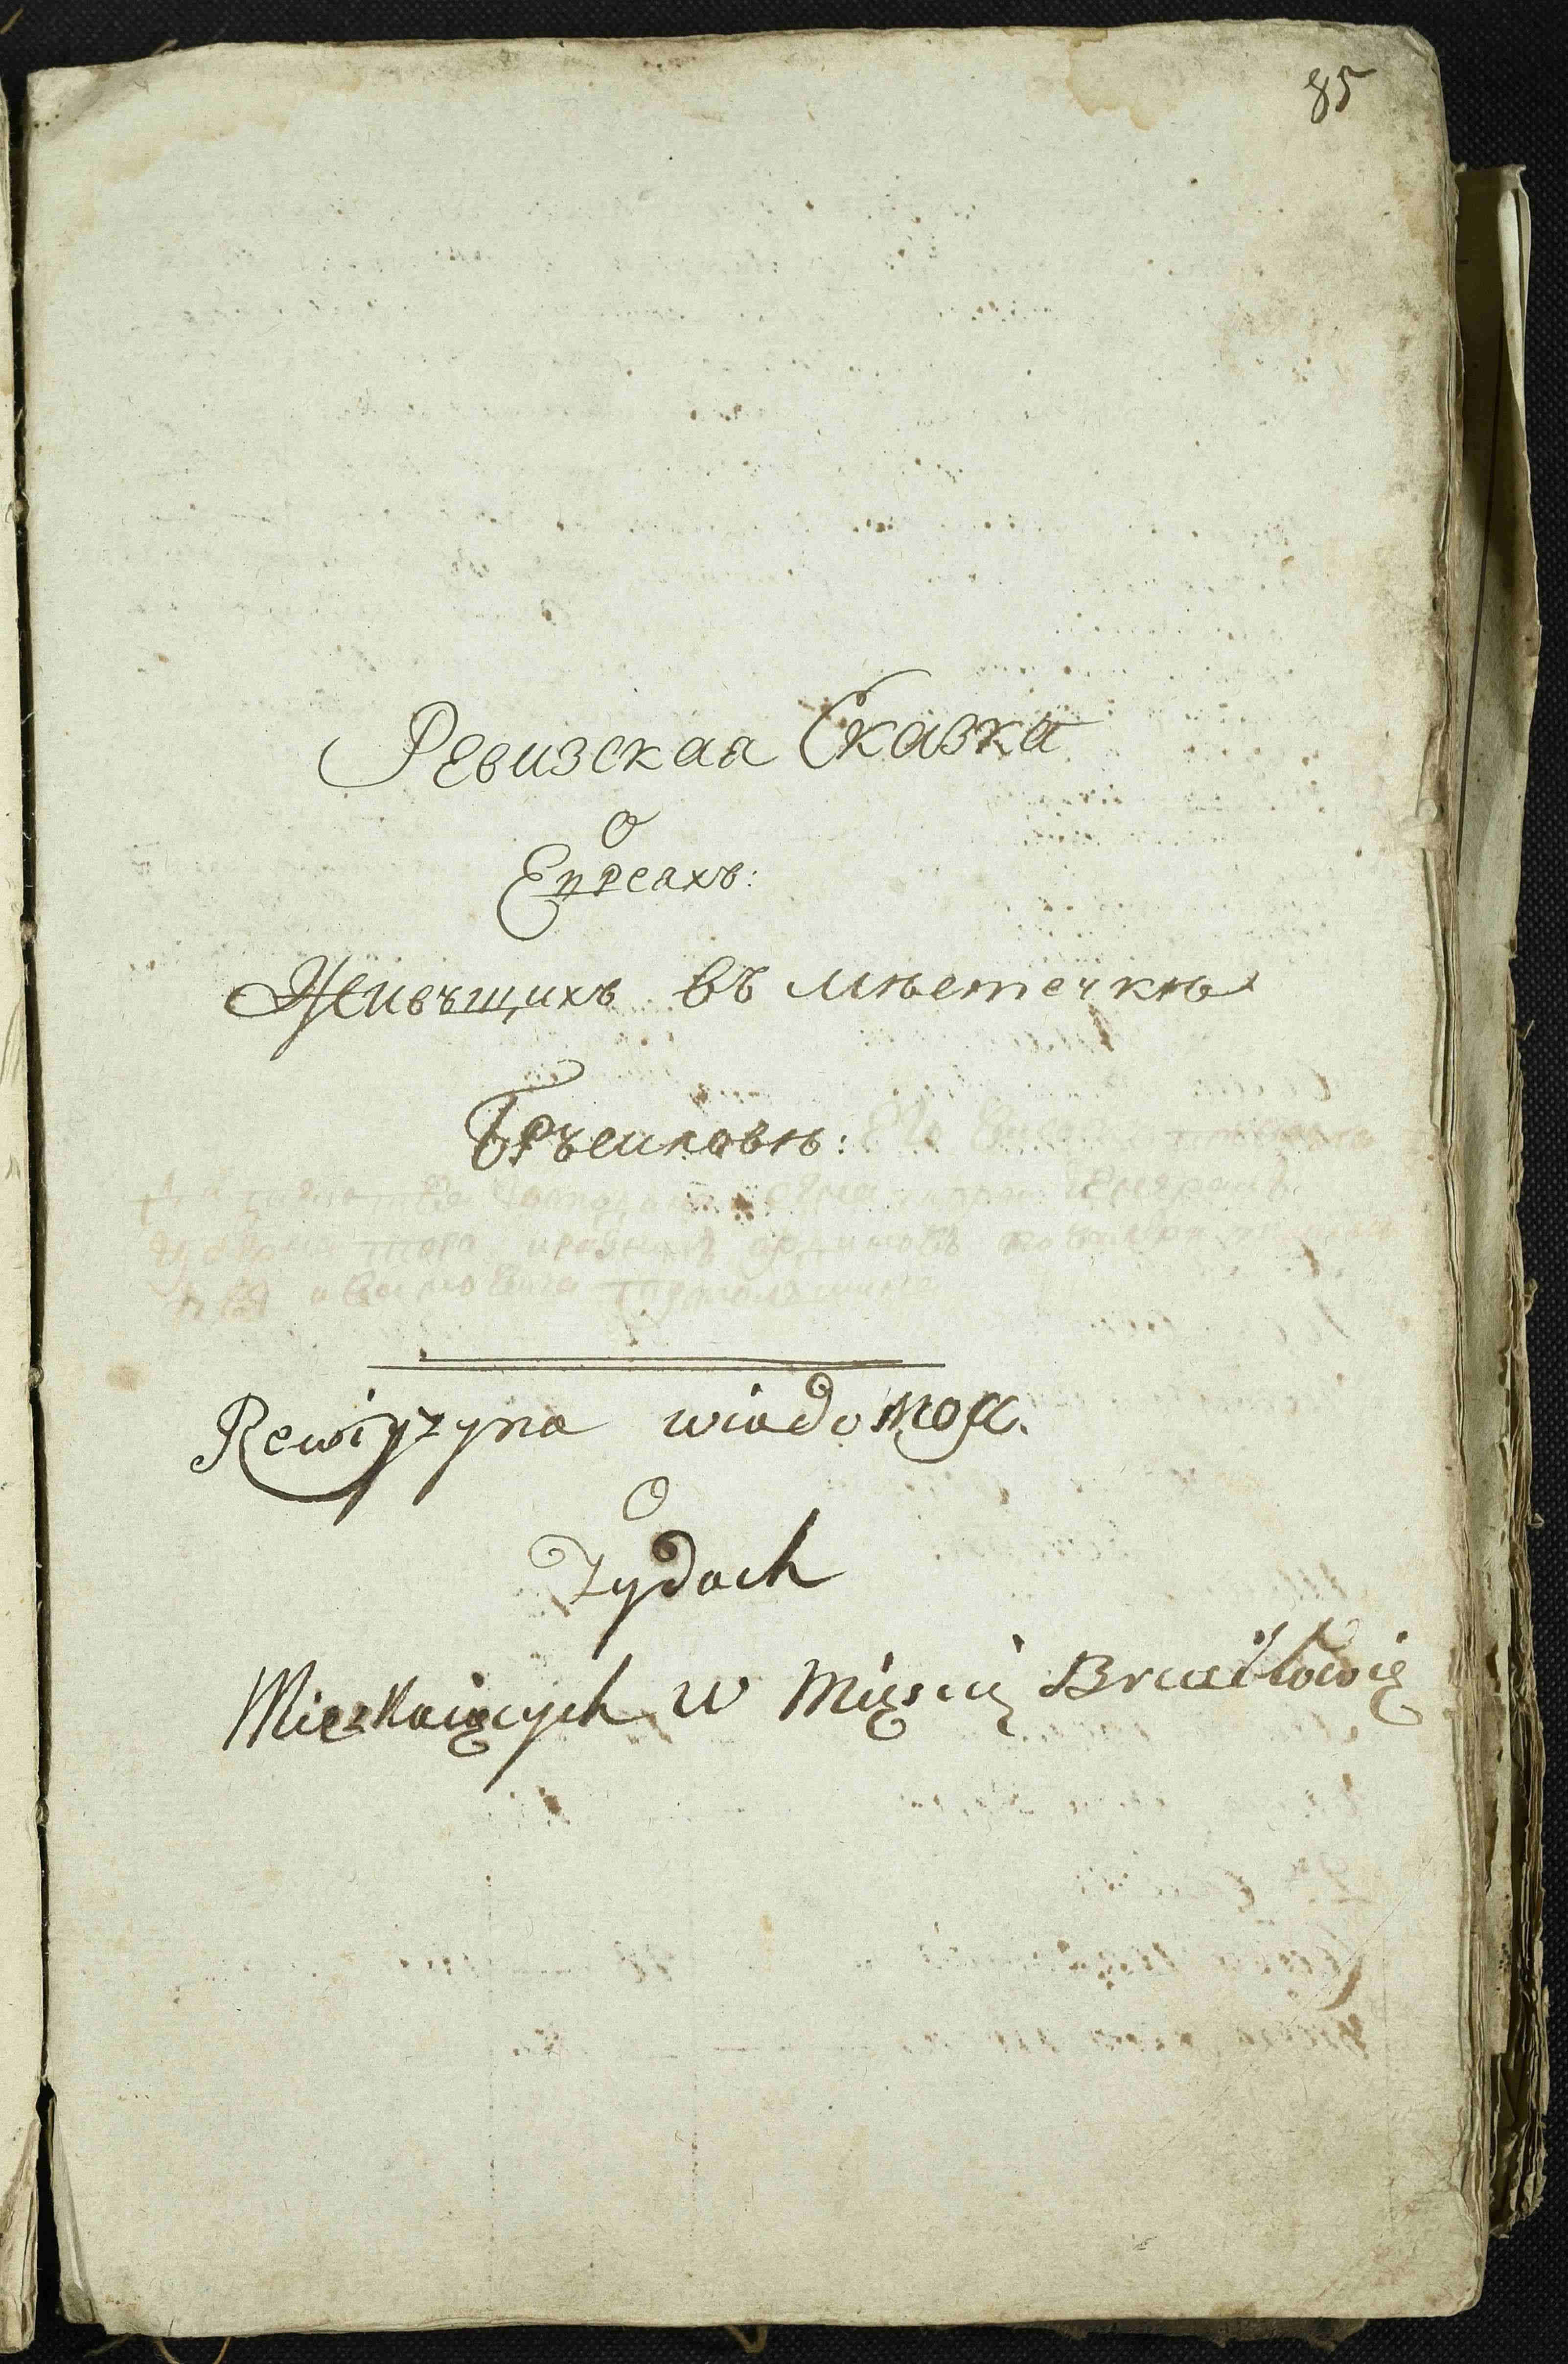 85
Ревизская Сказка
О
Еηреахъ:
Живъщихъ въ мѣстечкѣ
Бръсиловѣ:
Rewizyzyna wiadomosc.
O
Zydach
Mieszkaiących w Mięscię Brusiłowię